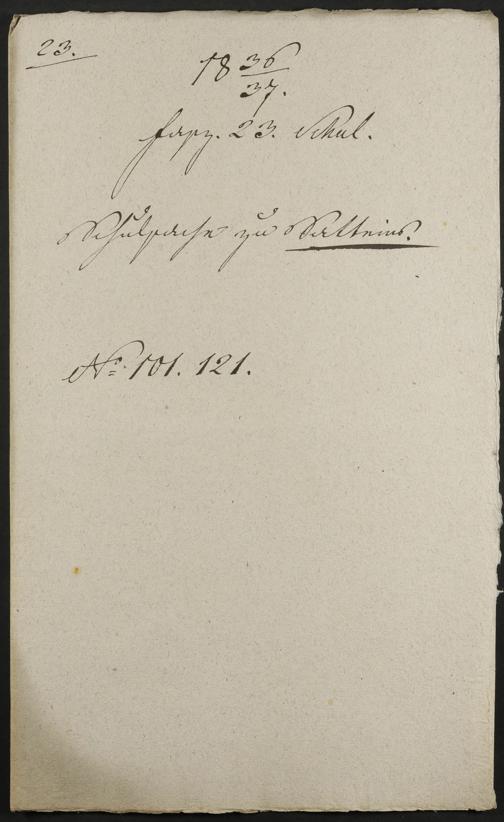 23.
18 36/37.
Fasz. 23. Schul.
Schulsache zu Satteins.
No. 101. 121.